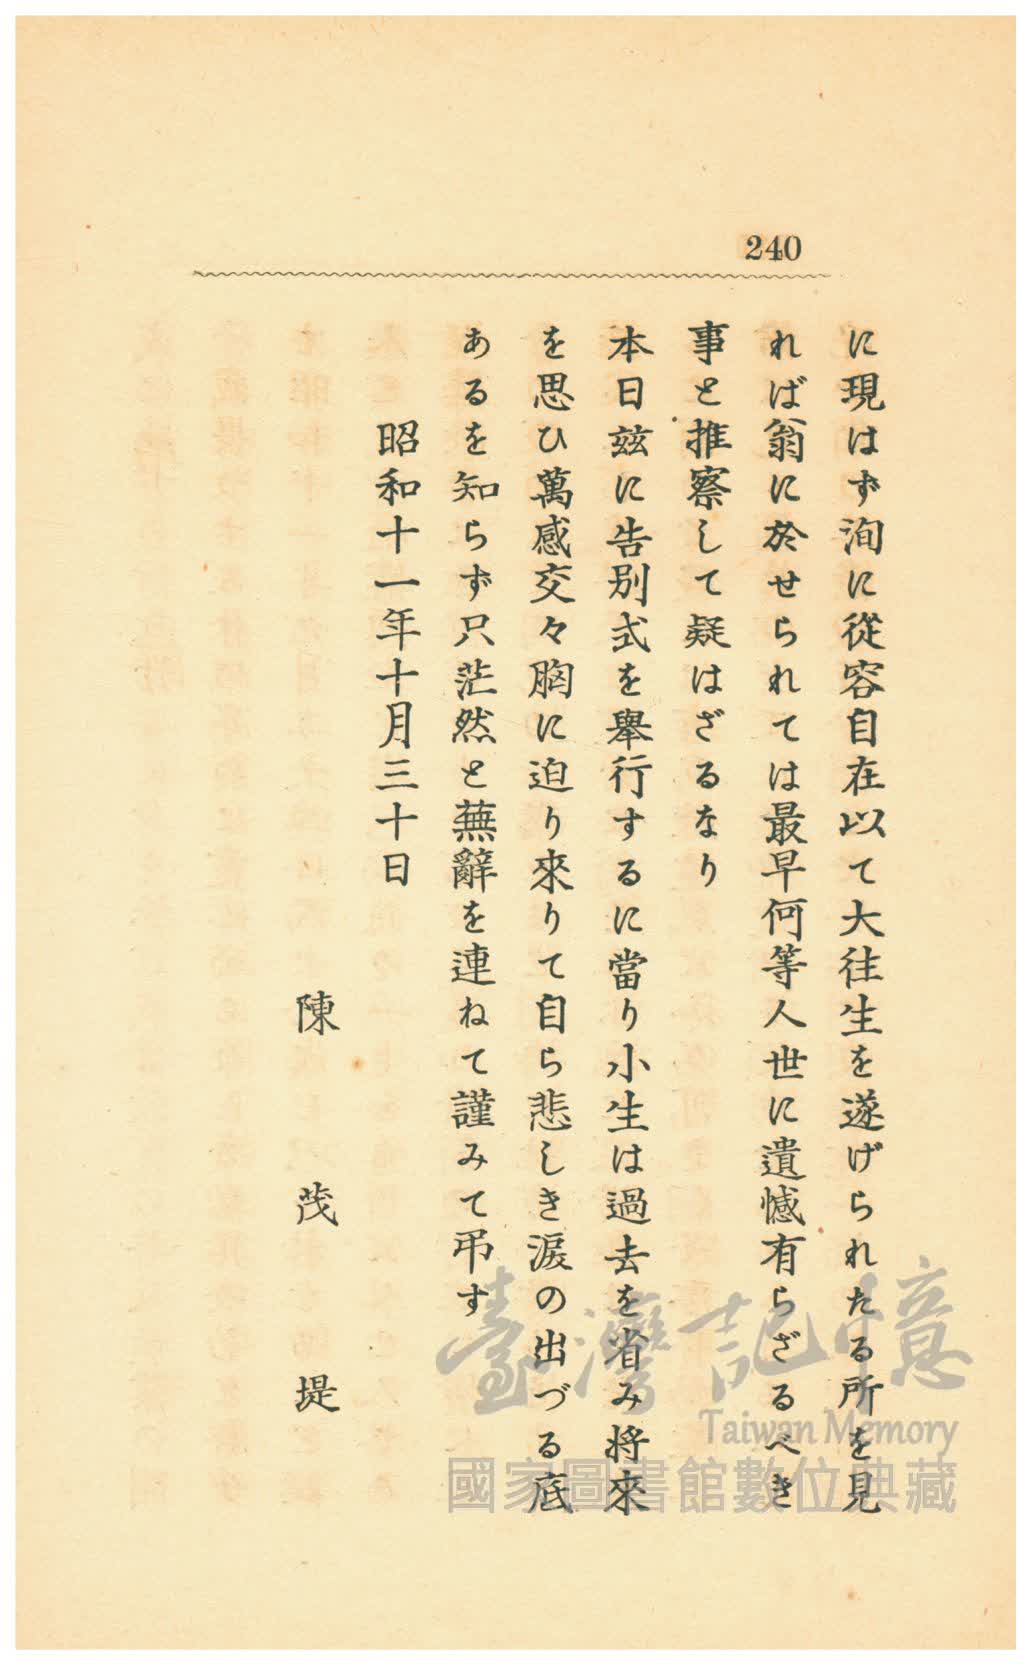 240
に現はず洵に從容自在以て大往生を遂げられたる所を見
れば翁に於せられては最早何等人世に遺憾有らざるべき
事と推察して疑はざるなり
本日玆に告別式を擧行するに當り小生は過去を省み將來
を思ひ萬感交々胸に迫り來りて自ら悲しき淚の出づる底
あるを知らず只茫然と蕪辭を連ねて謹みて弔す
昭和十一年十月三十日
陳茂堤
臺灣記憶
Taiwan Memory
國家圖書館數位典藏